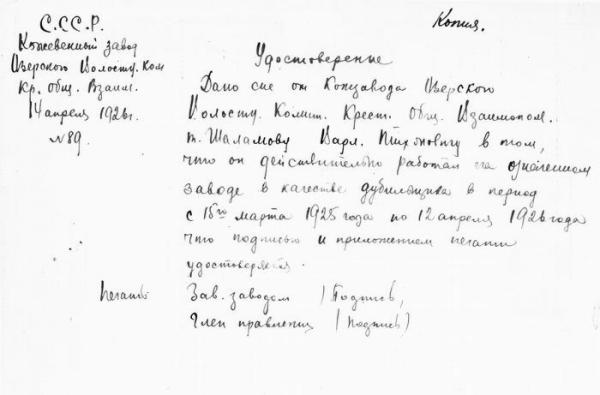 С.С.С.Р.
Кожевенный завод
Озерского Волостн. Ком
Кр. Общ. Взаим.
14 апреля 1926 г.
№ 89.
Копия.
Удостоверение
Дано сие от Кожзавода Озерского
Волостн. Комит. Крест. Общ. Взаимопом.
т. Шаламову Варл. Тихоновичу в том,
что он действительно работал на означенном
заводе в качестве дубильщика в период
с 15го марта 1925 года по 12 апреля 1926 года
что подписью и приложением печати
удостоверяется.
Печать
Зав. заводом (Подпись,
Член правления (Подпись)